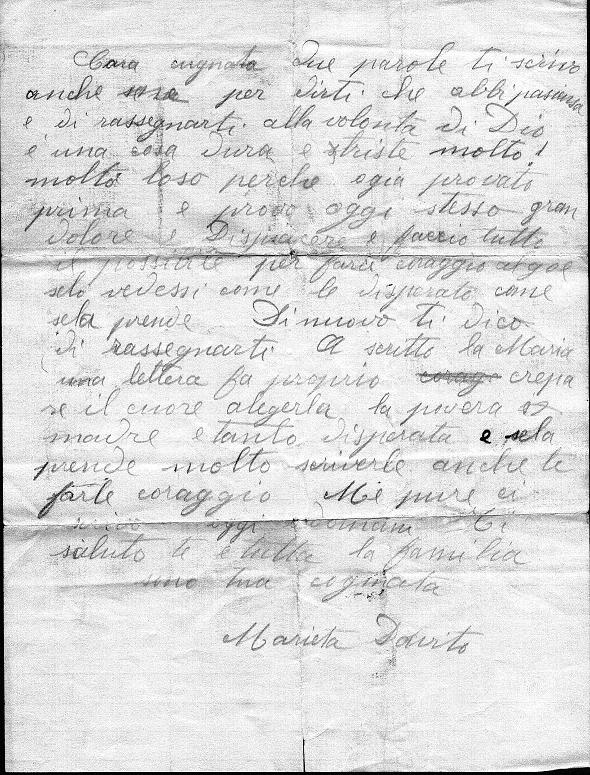 Cara cugnata due parole ti scrivo
anche per dirti che abbi pasiensa
e di rassegnarti alla volonta di Dio
e una cosa dura e triste molto!
molto loso perche ogia provato
prima e provo oggi stesso gran
dolore e Dispiacere e faccio tutto
il possibile per farci coraggio
selo vedessi come le disperato come
sela prende Di nuovo ti dico
di rassegnarti A scritto la Maria
una lettera fa proprio crepa
re il cuore alegerla la povera
madre e tanto disperata e sela
prende molto scriverle anche te
farle coraggio Mè pure ci
scrivo oggi edomani Ti
saluto te e tutta la familia
sono tua cognata
Marieta Davito